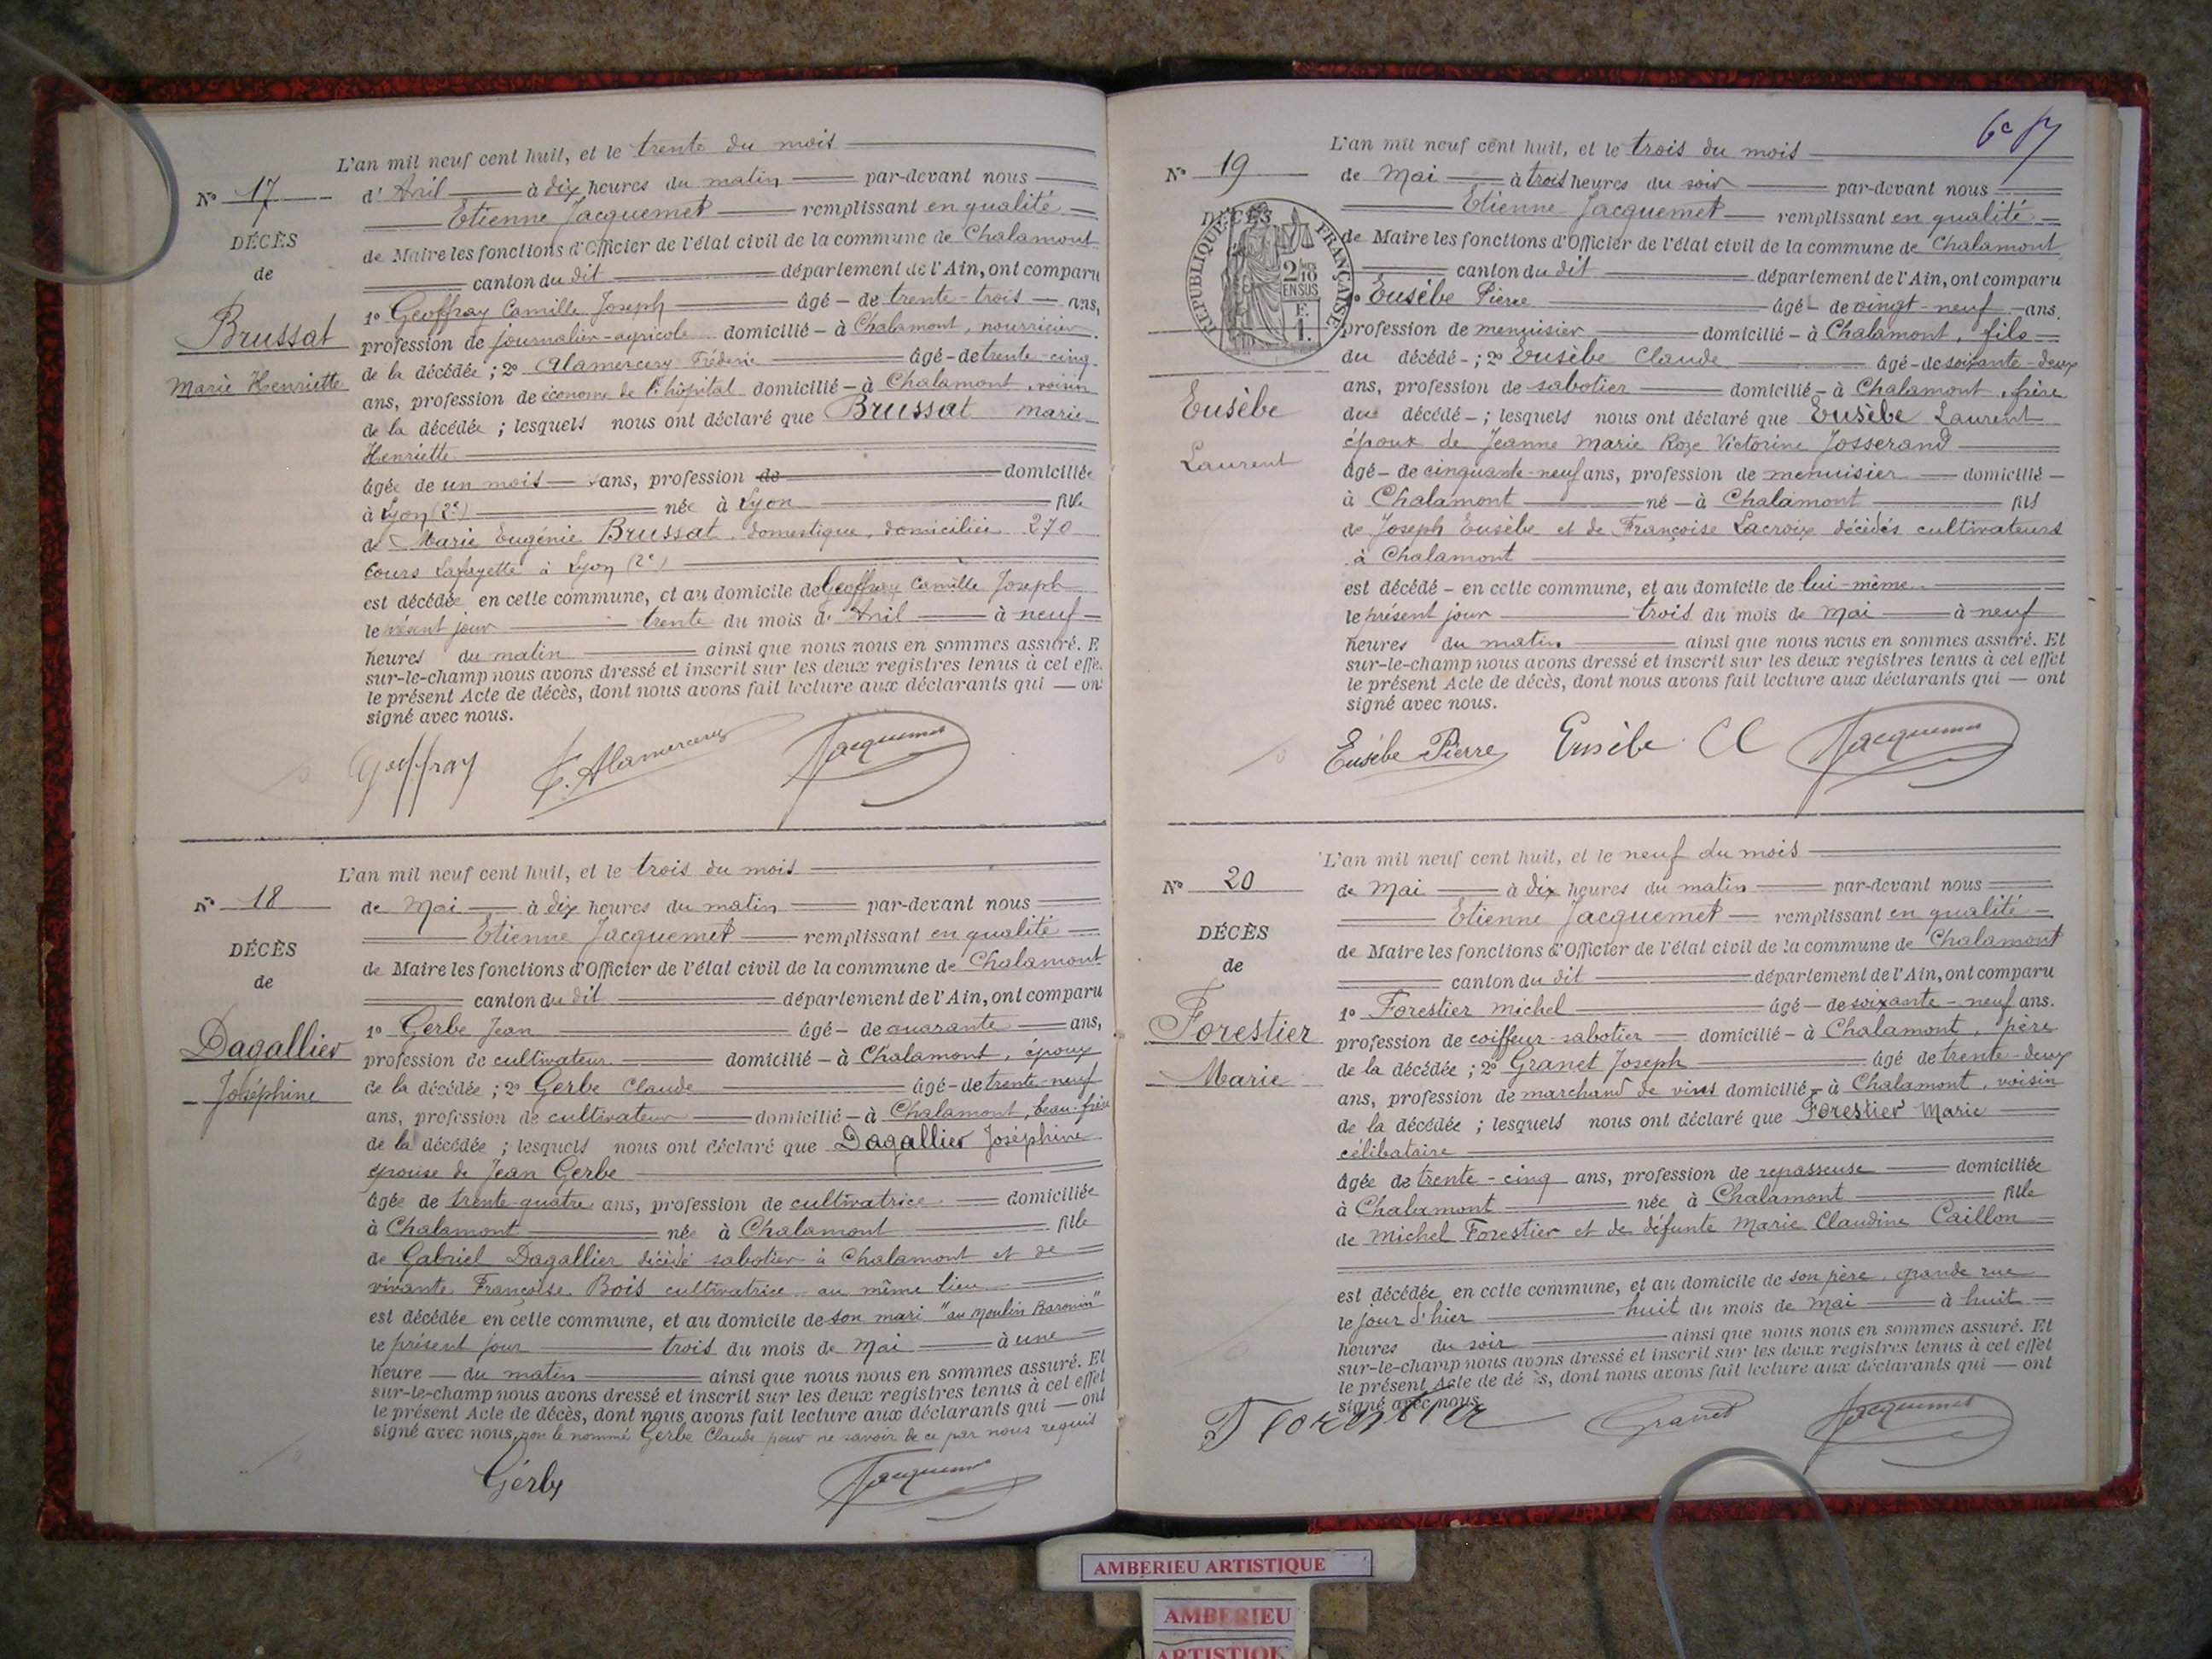 L'an mil neuf cent huit, et le trente du mois
N° 17
d'Avril à dix heures du matin par-devant nous
Etienne Jacquemet remplissant en qualité
DÉCÈS
de Maire les fonctions d'Officier de l'état civil de la commune de Chalamont
de
canton du dit département de l'Ain, ont comparu
1° Geoffray Camille Joseph âgé de trente-trois ans,
Brussat
profession de journalier-agricole domicilié à Chalamont, nourricier
Marie Henriette
de la décédée ; 2° Alamercery Fréderic âgé de trente-cinq
ans, profession de économe de l'hôpital domicilié à Chalamont, voisin
de la décédée ; lesquels nous ont déclaré que Brussat Marie
Henriette
âgée de un mois ans, profession de domiciliée
à Lyon (2e) née à Lyon fille
de Marie Eugénie Brussat, domestique, domiciliée 270
Cours Lafayette à Lyon (2e)
est décédée en cette commune, et au domicile de Geoffray Camille Joseph
le présent jour trente du mois d'Avril à neuf
heures du matin ainsi que nous nous en sommes assuré. E
sur-le-champ nous avons dressé et inscrit sur les deux registres tenus à cet effe
le présent Acte de décès, dont nous avons fait lecture aux déclarants qui — on
signé avec nous.
Geoffray F. Alamercery Jacquemet
L'an mil neuf cent huit, et le trois du mois
N° 18
de Mai à dix heures du matin par-devant nous
Etienne Jacquemet remplissant en qualité
DÉCÈS
de Maire les fonctions d'Officier de l'état civil de la commune de Chalamont
de
canton du dit département de l'Ain, ont comparu
1° Gerbe Jean âgé de quarante ans,
Dagallier
profession de cultivateur domicilié à Chalamont, époux
Joséphine
de la décédée ; 2° Gerbe Claude âgé de trente-neuf
ans, profession de cultivateur domicilié à Chalamont, beau-frère
de la décédée ; lesquels nous ont déclaré que Dagallier Joséphine
épouse de Jean Gerbe
âgée de trente-quatre ans, profession de cultivatrice domiciliée
à Chalamont née à Chalamont fille
de Gabriel Dagallier décédé sabotier à Chalamont et de
vivante Françoise Bois cultivatrice au même lieu
est décédée en cette commune, et au domicile de son mari "au Moulin Baronin"
le présent jour trois du mois de Mai à une
heure du matin ainsi que nous nous en sommes assuré. Et
sur-le-champ nous avons dressé et inscrit sur les deux registres tenus à cet effet
le présent Acte de décès, dont nous avons fait lecture aux déclarants qui — ont
signé avec nous, non le nommé Gerbe Claude pour ne savoir de ce par nous requis
Gérbe Jacquemet
L'an mil neuf cent huit, et le trois du mois
N° 19
de Mai à trois heures du soir par-devant nous
Etienne Jacquemet remplissant en qualité
DÉCÈS
RÉPUBLIQUE FRANÇAISE
2/10 EN SUS
F. 1.
de Maire les fonctions d'Officier de l'état civil de la commune de Chalamont
canton du dit département de l'Ain, ont comparu
1° Eusèbe Pierre âgé de vingt-neuf ans.
profession de menuisier domicilié à Chalamont, fils
du décédé ; 2° Eusèbe Claude âgé de soixante-deux
ans, profession de sabotier domicilié à Chalamont, frère
Eusèbe
du décédé ; lesquels nous ont déclaré que Eusèbe Laurent
époux de Jeanne Marie Roze Victorine Josserand
Laurent
âgé de cinquante-neuf ans, profession de menuisier domicilié
à Chalamont né à Chalamont fils
de Joseph Eusèbe et de Françoise Lacroix décédés cultivateurs
à Chalamont
est décédé en cette commune, et au domicile de lui-même
le présent jour trois du mois de Mai à neuf
heures du matin ainsi que nous nous en sommes assuré. Et
sur-le-champ nous avons dressé et inscrit sur les deux registres tenus à cet effet
le présent Acte de décès, dont nous avons fait lecture aux déclarants qui — ont
signé avec nous.
Eusèbe Pierre Eusèbe Cl Jacquemet
L'an mil neuf cent huit, et le neuf du mois
N° 20
de Mai à dix heures du matin par-devant nous
Etienne Jacquemet remplissant en qualité
DÉCÈS
de Maire les fonctions d'Officier de l'état civil de la commune de Chalamont
de
canton du dit département de l'Ain, ont comparu
1° Forestier Michel âgé de soixante-neuf ans.
Forestier
profession de coiffeur-sabotier domicilié à Chalamont, père
Marie
de la décédée ; 2° Granet Joseph âgé de trente-deux
ans, profession de marchand de vins domicilié à Chalamont, voisin
de la décédée ; lesquels nous ont déclaré que Forestier Marie
célibataire
âgée de trente-cinq ans, profession de repasseuse domiciliée
à Chalamont née à Chalamont fille
de Michel Forestier et de défunte Marie Claudine Caillon
est décédée en cette commune, et au domicile de son père, grande rue
le jour d'hier huit du mois de Mai à huit
heures du soir ainsi que nous nous en sommes assuré. Et
sur-le-champ nous avons dressé et inscrit sur les deux registres tenus à cet effet
le présent Acte de décès, dont nous avons fait lecture aux déclarants qui — ont
signé avec nous
Florestier Granet Jacquemet
AMBERIEU ARTISTIQUE
AMBERIEU
ARTISTIQUE